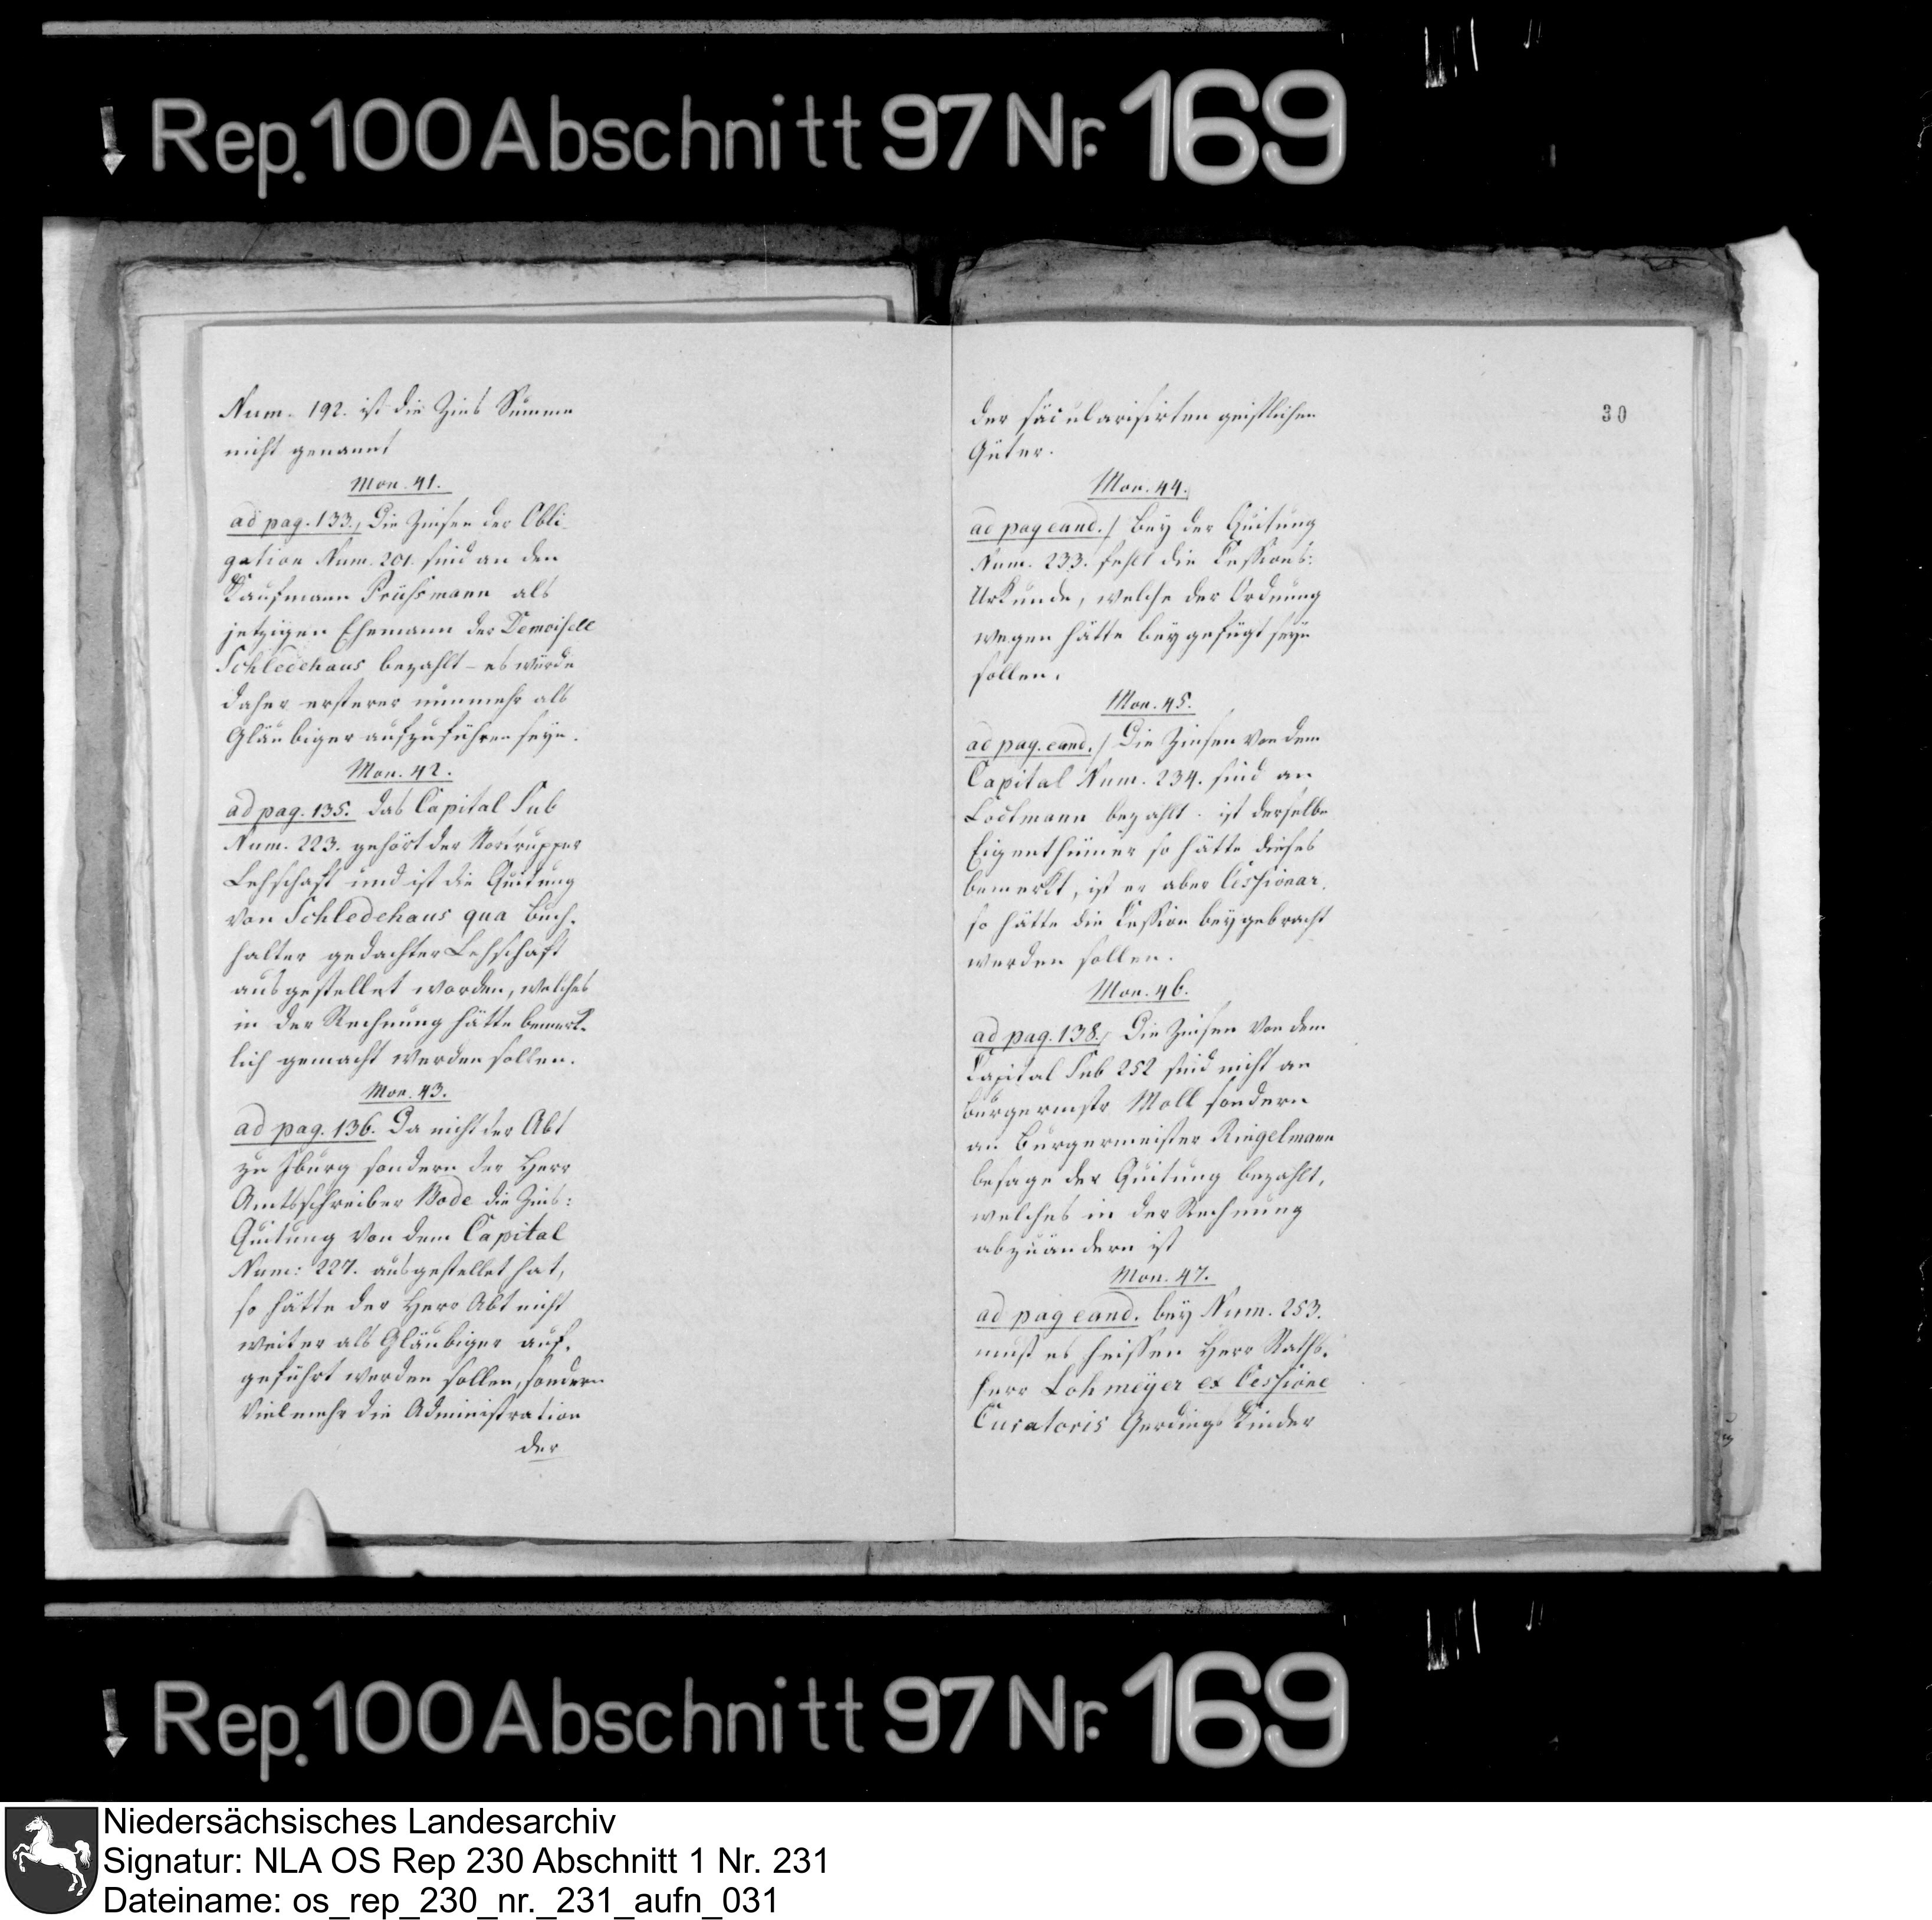 Rep. 100 Abschnitt 97 Nr. 169
Num. 192. ist die Zins Summe
nicht genannt
Mon. 41.
ad pag. 133. Die Zinsen der Obli-
gation Num. 201. sind an den
Kaufmann Prüssmann als
jetzigen Ehemann der Demoiselle
Schledehaus bezahlt – es würde
daher ersterer nunmehr als
Gläubiger aufzuführen seyn.
Mon. 42.
ad pag. 135. das Capital Sub
Num. 223. gehört der Nortrupper
Lehschaft und ist die Quitung
von Schledehaus qua Buch-
halter gedachter Lehschaft
ausgestellet worden, welches
in der Rechnung hätte bemerk-
lich gemacht werden sollen.
Mon. 43.
ad pag. 136. Da nicht der Abt
zu Iburg sondern der Herr
Amtsschreiber Bode die Zins:
Quitung von dem Capital
Num: 227. ausgestellet hat,
so hätte der Herr Abt nicht
weiter als Gläubiger auf-
geführt werden sollen, sondern
vielmehr die Administration
der
30
der säcularisirten geistlichen
Güter.
Mon. 44.
ad pag eand. / bey der Quitung
Num. 233. fehlt die Cessions:
Urkunde, welche der Ordnung
wegen hätte beygefügt seyn
sollen.
Mon. 45.
ad pag. eand. / Die Zinsen von dem
Capital Num. 234. sind an
Lodtmann bezahlt. ist derselbe
Eigenthümer so hätte dieses
bemerkt, ist er aber Cessionar.
so hätte die Cession beygebracht
werden sollen.
Mon. 46.
ad pag. 138. Die Zinsen von dem
Capital Sub 252 sind nicht an
burgermstr Moll sondern
an Burgermeister Ringelmann
besage der Quitung bezahlt,
welches in der Rechnung
abzuändern ist
Mon. 47.
ad pag eand. bey Num. 253.
muß es heissen Herr Raths-
herr Lohmeyer ex Cessione
Curatoris Gerdings Kinder
Rep. 100 Abschnitt 97 Nr. 169
Niedersächsisches Landesarchiv
Signatur: NLA OS Rep 230 Abschnitt 1 Nr. 231
Dateiname: os_rep_230_nr._231_aufn_031